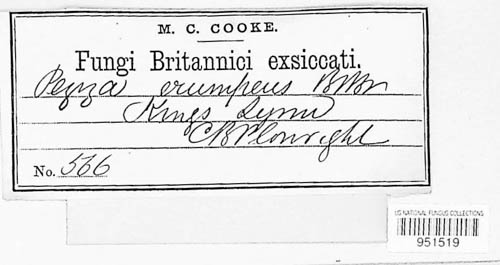 M. C. COOKE.
Fungi Britannici exsiccati.
Peziza erumpens B&Br
Kings Lynn
C B Plowright
No. 566
US NATIONAL FUNGUS COLLECTIONS
951519